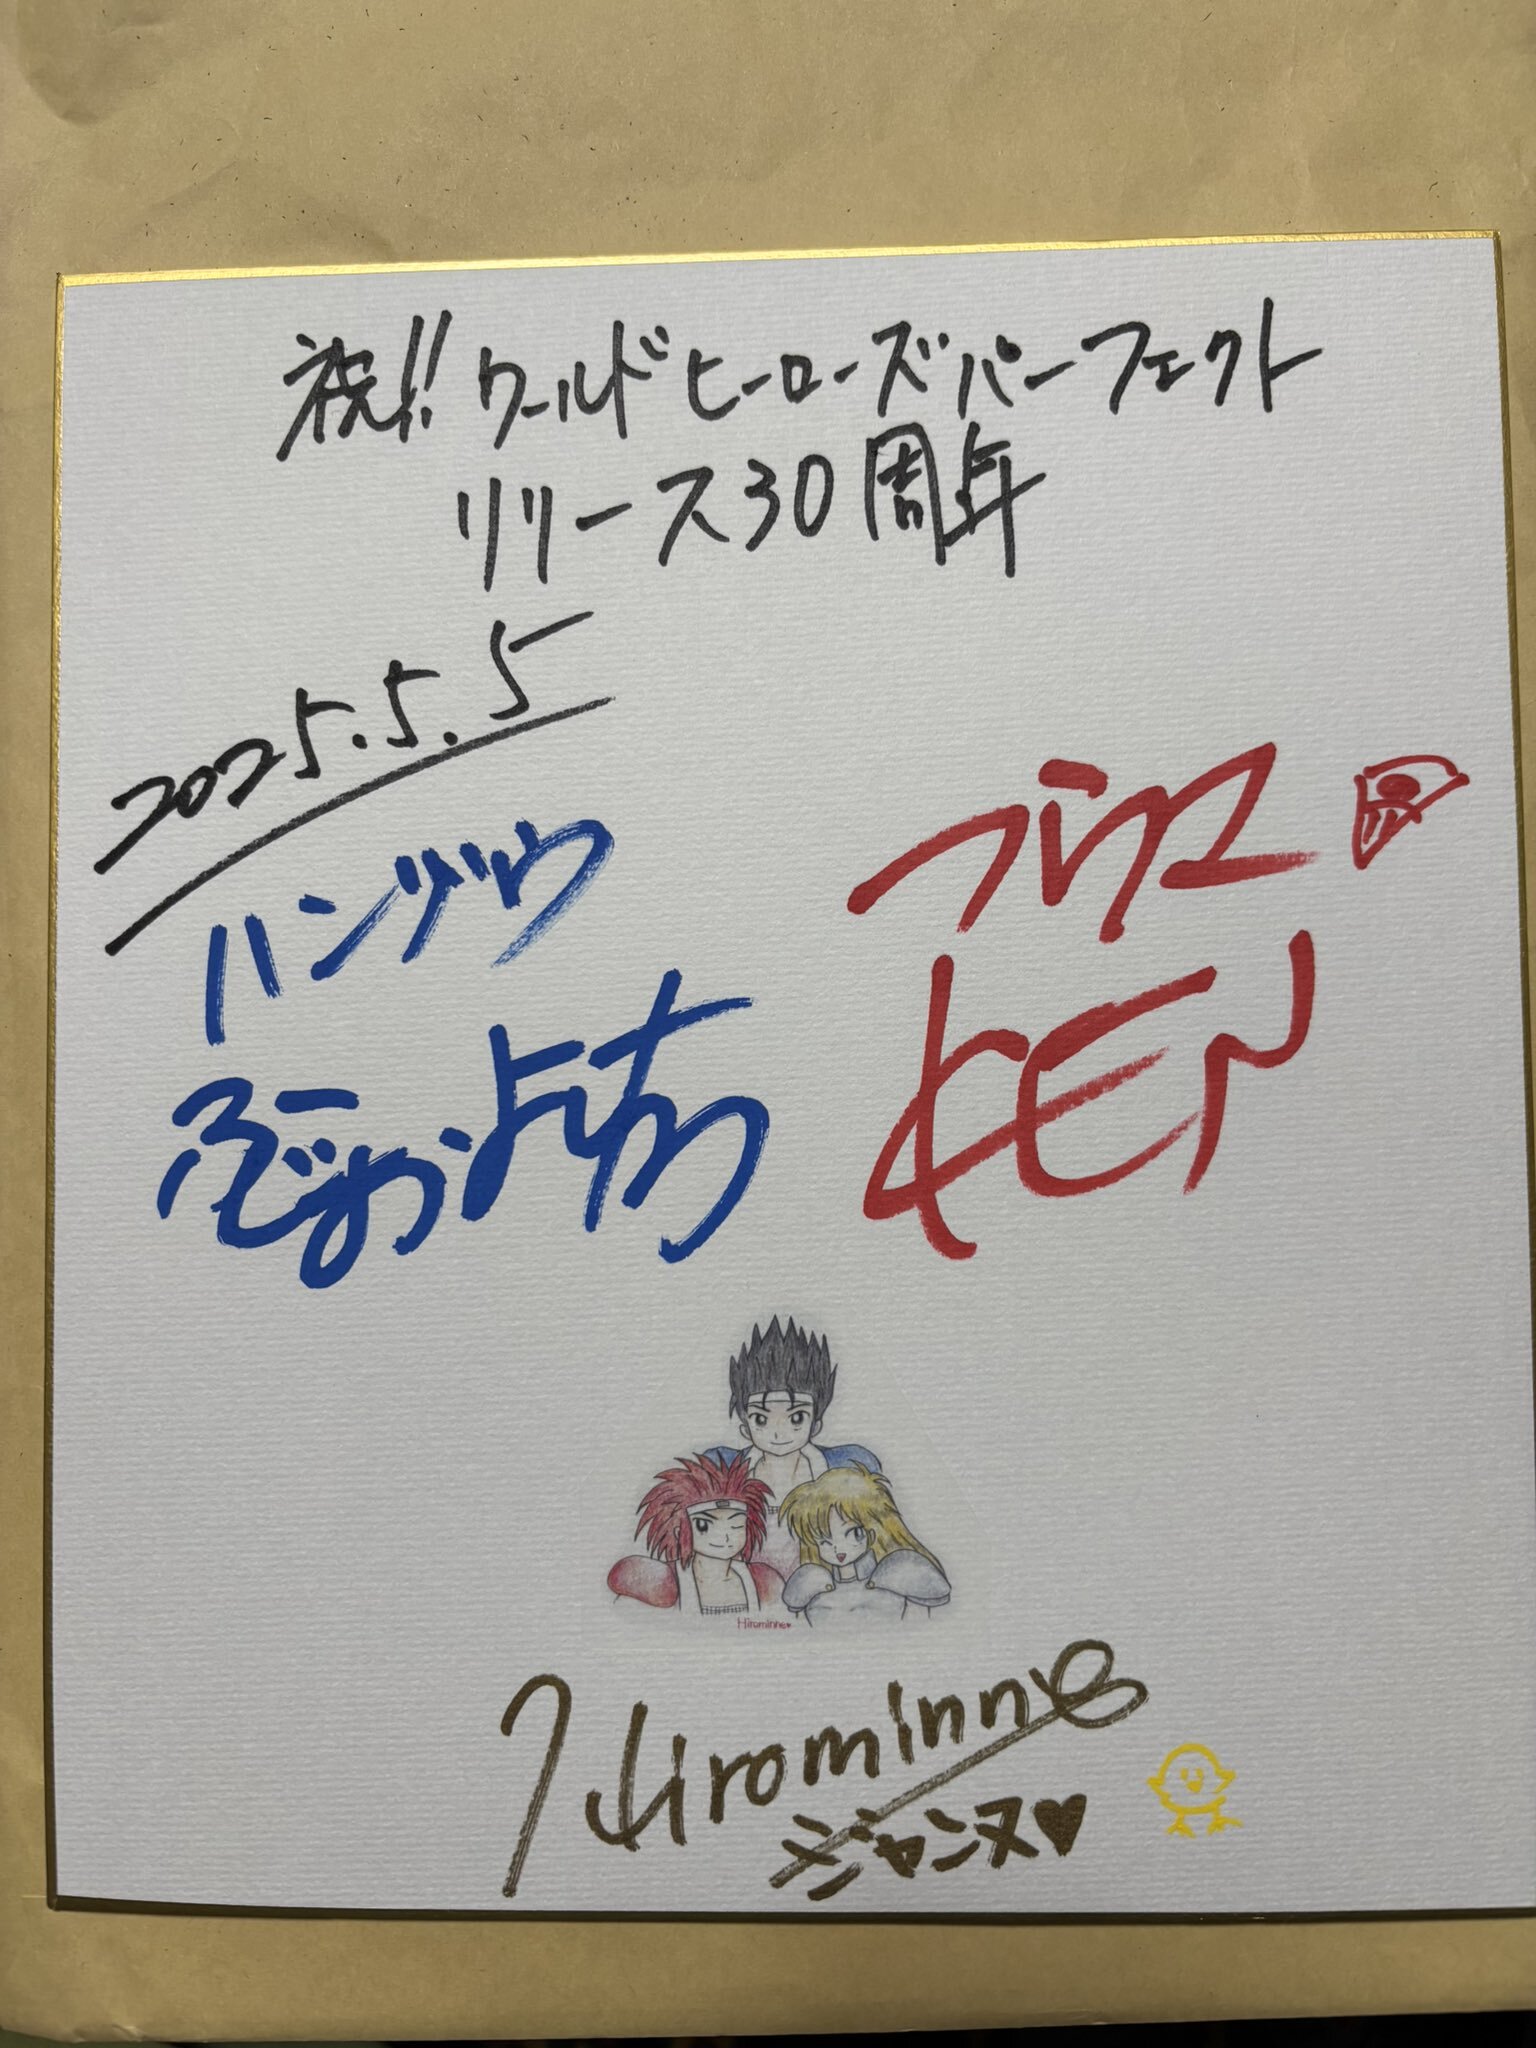 祝!! ワールドヒーローズパーフェクト
リリース30周年
2025.5.5
ハンゾウ
フウマ
KEN
Hirominne♥
Hirominne
ジャンヌ♥